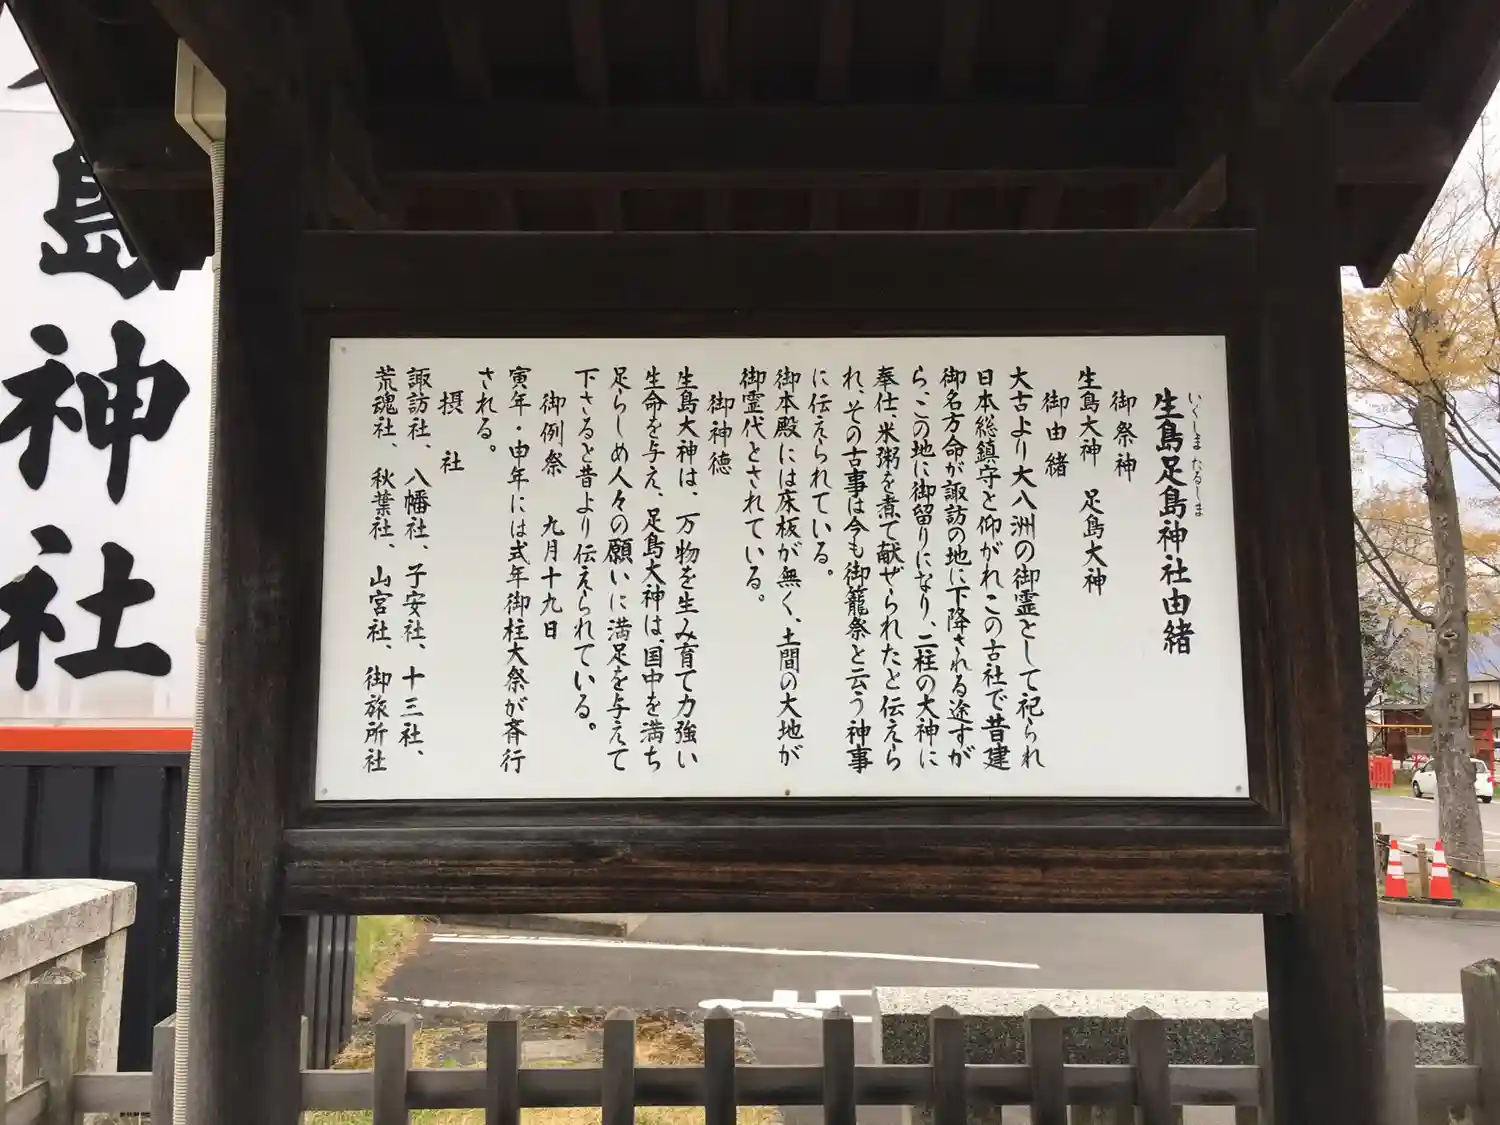 生島足島神社由緒
いくしま たるしま
御祭神
生島大神 足島大神
御由緒
大古より大八洲の御霊として祀られ
日本総鎮守と仰がれこの古社で昔建
御名方命が諏訪の地に下降される途すが
ら、この地に御留りになり、二柱の大神に
奉仕、米粥を煮て献ぜられたと伝えら
れ、その古事は今も御籠祭と云う神事
に伝えられている。
御本殿には床板が無く、土間の大地が
御霊代とされている。
御神徳
生島大神は、万物を生み育て力強い
生命を与え、足島大神は、国中を満ち
足らしめ人々の願いに満足を与えて
下さると昔より伝えられている。
御例祭 九月十九日
寅年・申年には式年御柱大祭が斉行
される。
摂社
諏訪社、八幡社、子安社、十三社、
荒魂社、秋葉社、山宮社、御旅所社
島神社